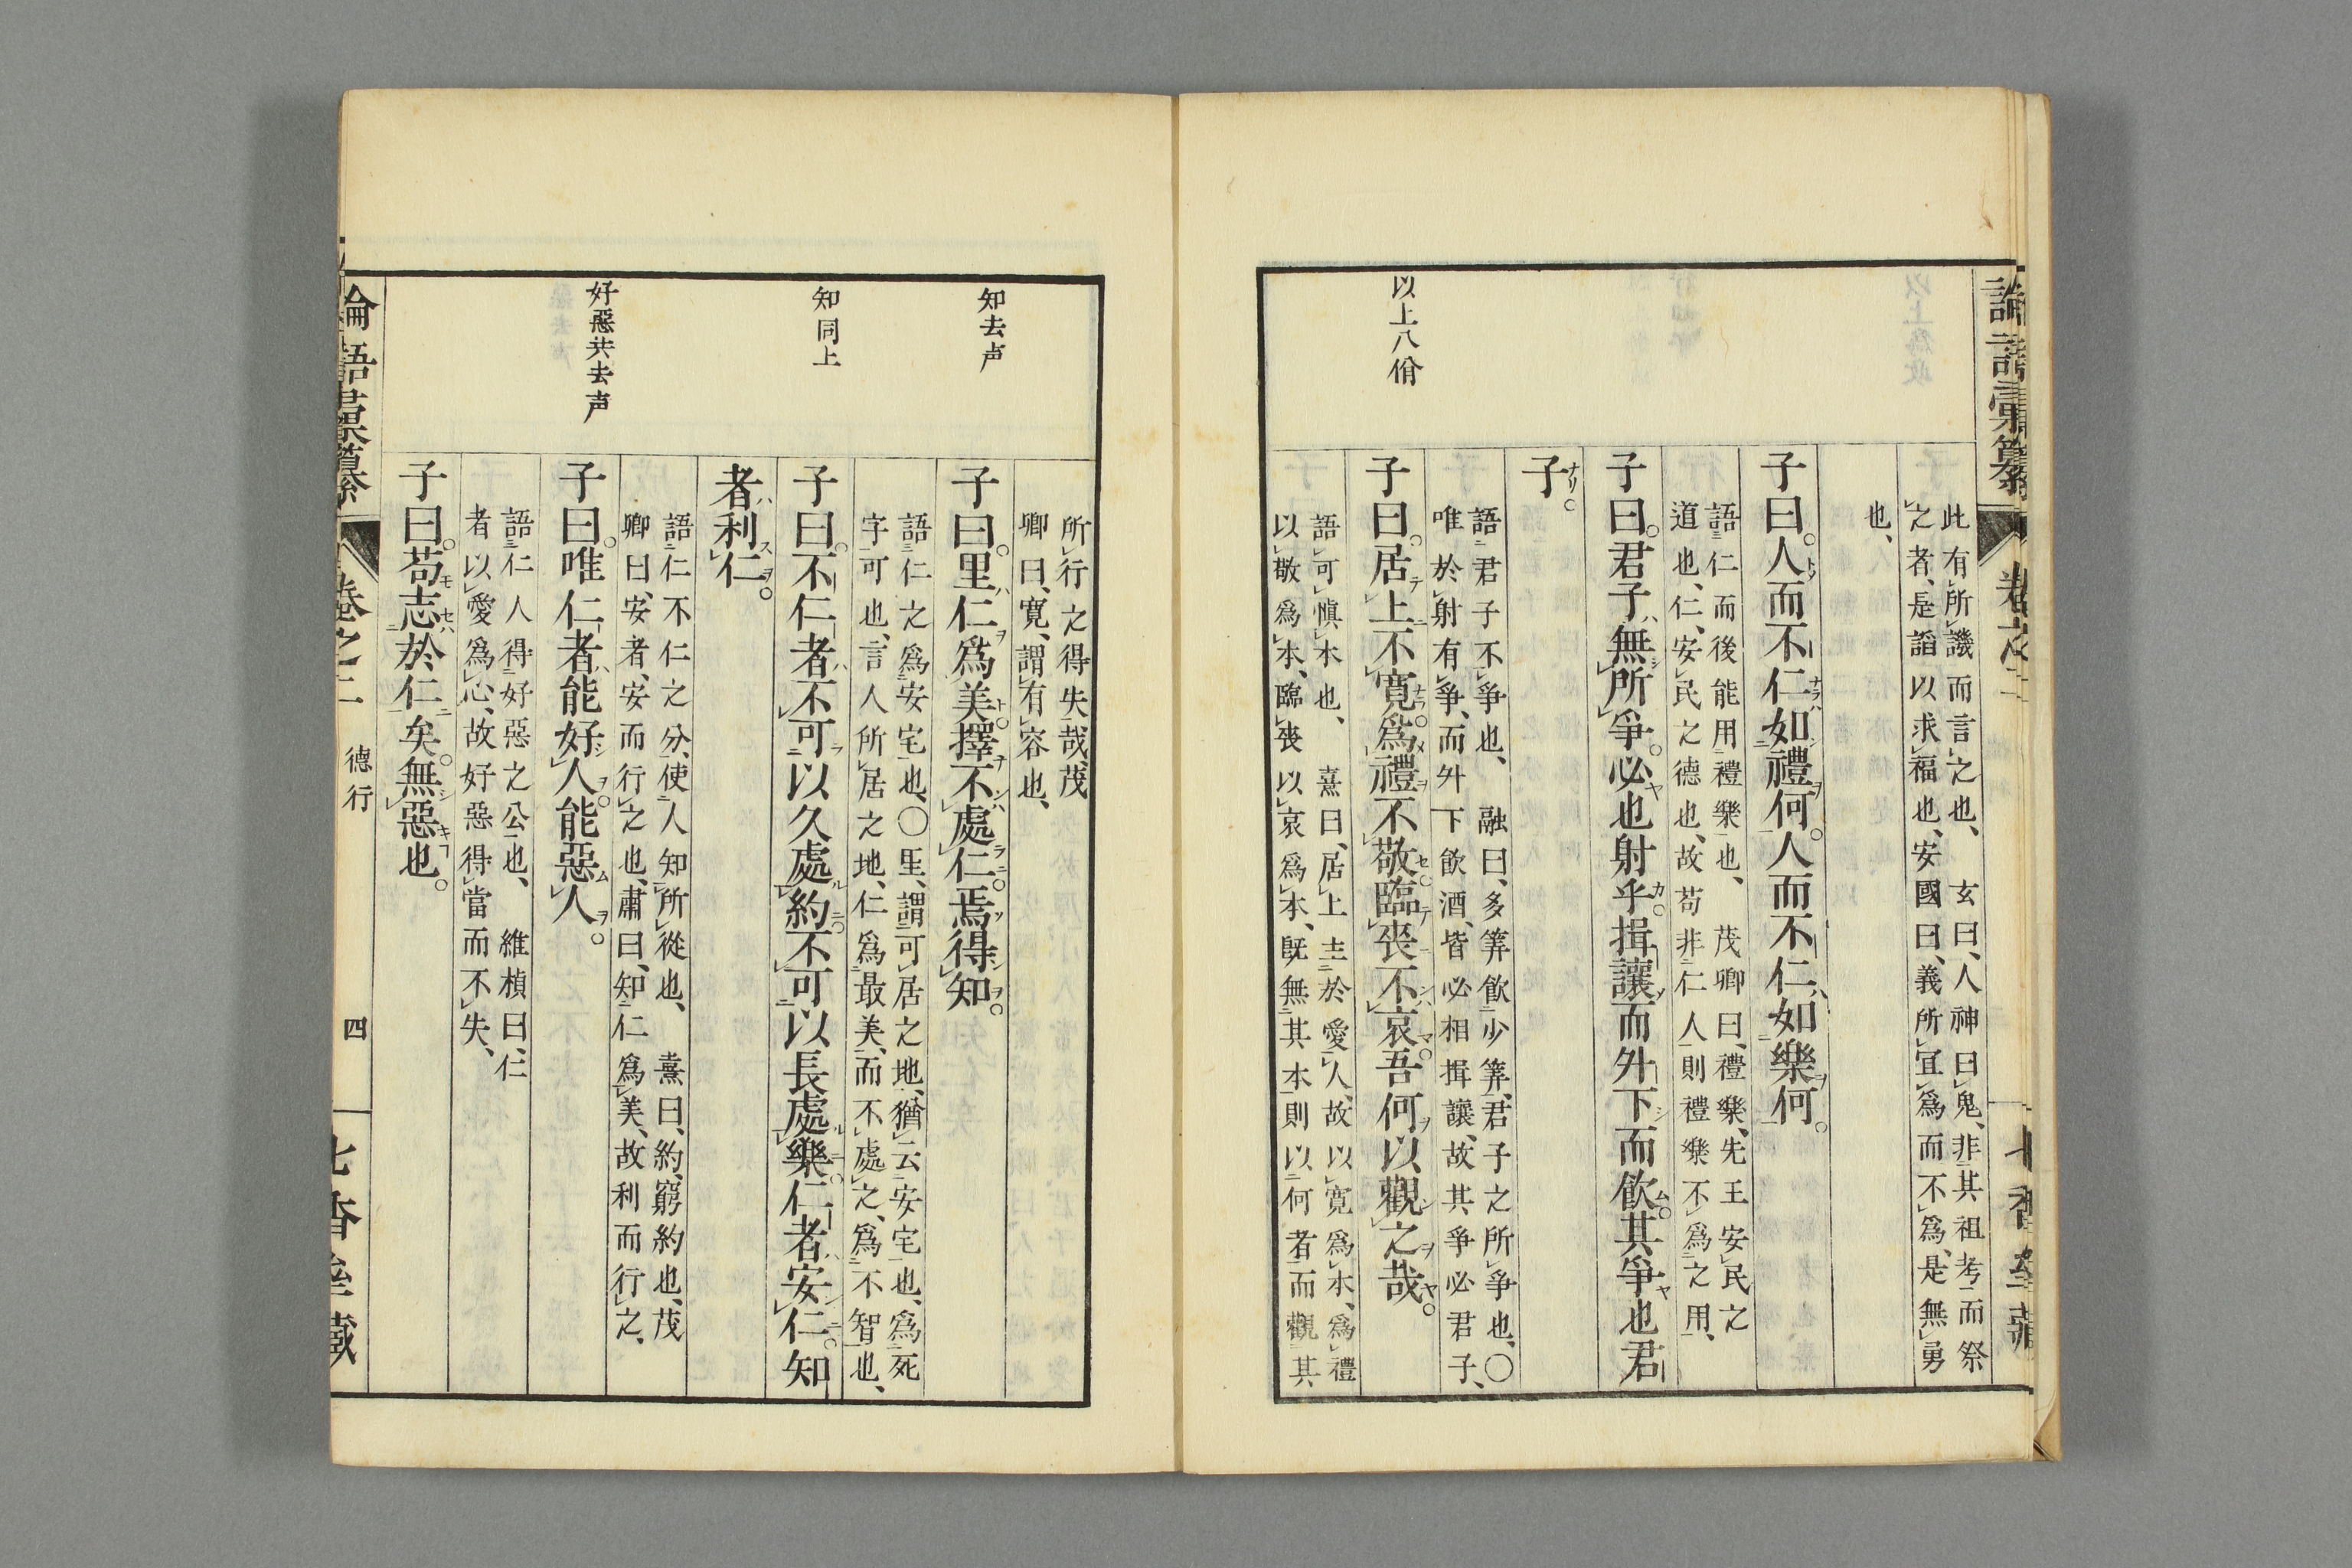 論語彙纂
卷之二
七香堂藏
此有所譏而言之也、玄曰、人神曰鬼、非其祖考而祭
之者、是謟以求福也、安國曰、義所宜爲而不爲、是無勇
也、
子曰。人而不仁如禮何。人而不仁如樂何。
語仁而後能用禮樂也、茂卿曰、禮樂、先王安民之
道也、仁、安民之德也、故苟非仁人則禮樂不爲之用、
子曰。君子無所爭。必也射乎。揖讓而升下而飲。其爭也君
子。
語君子不爭也、融曰、多筭飲少筭、君子之所爭也、〇
唯於射有爭、而升下飲酒、皆必相揖讓、故其爭必君子、
以上八佾
子曰。居上不寬。爲禮不敬。臨喪不哀。吾何以觀之哉。
語可愼本也、熹曰、居上主於愛人、故以寬爲本、爲禮
以敬爲本、臨喪以哀爲本、既無其本則以何者而觀其
所行之得失哉、茂
卿曰、寬、謂有容也、
知去声
子曰。里仁爲美。擇不處仁。焉得知。
語仁之爲安宅也、〇里、謂可居之地、猶云安宅也、爲死
字可也、言人所居之地、仁爲最美、而不處之、爲不智也、
知同上
子曰。不仁者不可以久處約。不可以長處樂。仁者安仁。知
者利仁。
語仁不仁之分、使人知所從也、熹曰、約、窮約也、茂
卿曰、安者、安而行之也、肅曰、知仁爲美、故利而行之、
好惡共去声
子曰。唯仁者能好人。能惡人。
語仁人得好惡之公也、維楨曰、仁
者以愛爲心、故好惡得當而不失、
子曰。苟志於仁矣。無惡也。
論語彙纂
卷之二
德行
四
七香堂藏